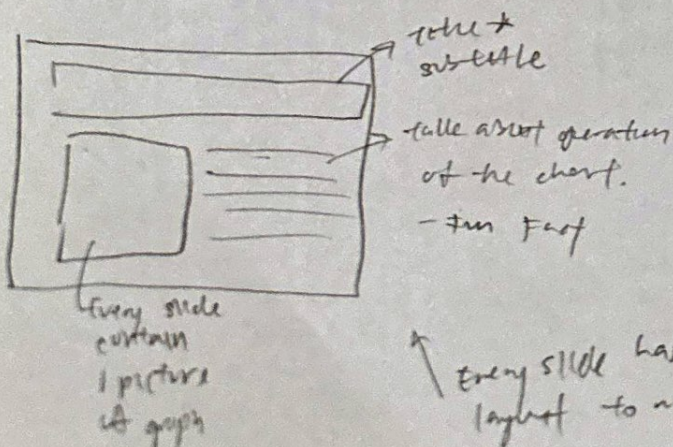 title +
subtitle
talk about operation
of the chart.
- Fun Fact
Every slide
contain
1 picture
of graph
Every slide ha
layout to